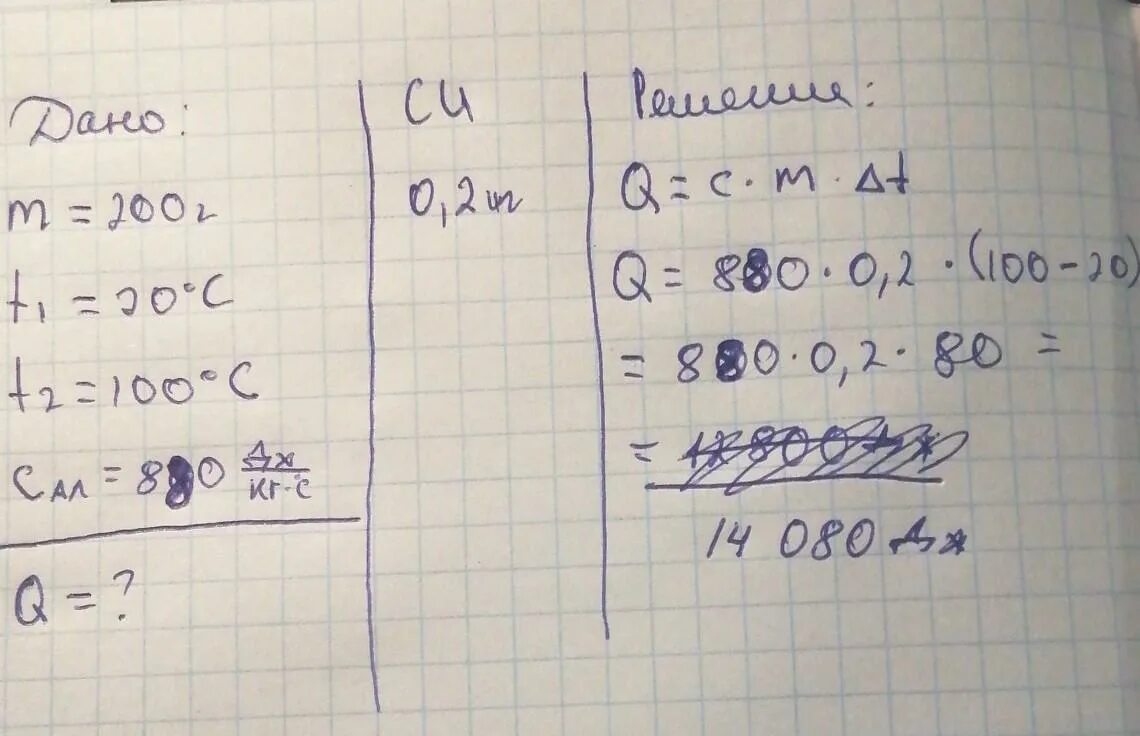 Дано:
m = 200г
t₁ = 20°C
t₂ = 100°C
cАл = 880 Дж/кг·°С
Q = ?
СИ
0,2 кг
Решение:
Q = c · m · Δt
Q = 880 · 0,2 · (100 - 20)
= 880 · 0,2 · 80 =
=
14 080 Дж